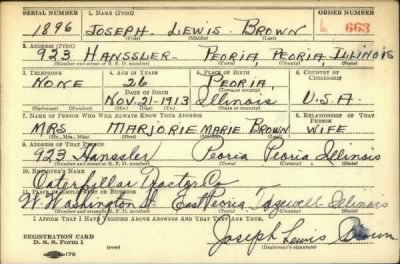 SERIAL NUMBER 1. NAME (Print) ORDER NUMBER
1896 JOSEPH LEWIS BROWN 663
(First) (Middle) (Last)
2. ADDRESS (Print)
923 HANSSLER PEORIA, PEORIA, ILLINOIS
(Number and street or R. F. D. number) (Town) (County) (State)
3. TELEPHONE 4. AGE IN YEARS 5. PLACE OF BIRTH 6. COUNTRY OF CITIZENSHIP
NONE 26 PEORIA,
DATE OF BIRTH
NOV. 21-1913 Illinois U.S.A.
(Exchange) (Number) (Mo.) (Day) (Yr.) (State or country)
7. NAME OF PERSON WHO WILL ALWAYS KNOW YOUR ADDRESS 8. RELATIONSHIP OF THAT PERSON
MRS MARJORIE MARIE BROWN WIFE
(Mr., Mrs., Miss) (First) (Middle) (Last)
9. ADDRESS OF THAT PERSON
923 Hanssler Peoria Peoria Illinois
(Number and street or R. F. D. number) (Town) (County) (State)
10. EMPLOYER'S NAME
Caterpillar Tractor Co
11. PLACE OF EMPLOYMENT OR BUSINESS
W. Washington St. East Peoria Tazewell Illinois
(Number and street or R. F. D. number) (Town) (County) (State)
I AFFIRM THAT I HAVE VERIFIED ABOVE ANSWERS AND THAT THEY ARE TRUE.
REGISTRATION CARD
D. S. S. Form 1 Joseph Lewis Brown
(Registrant's signature)